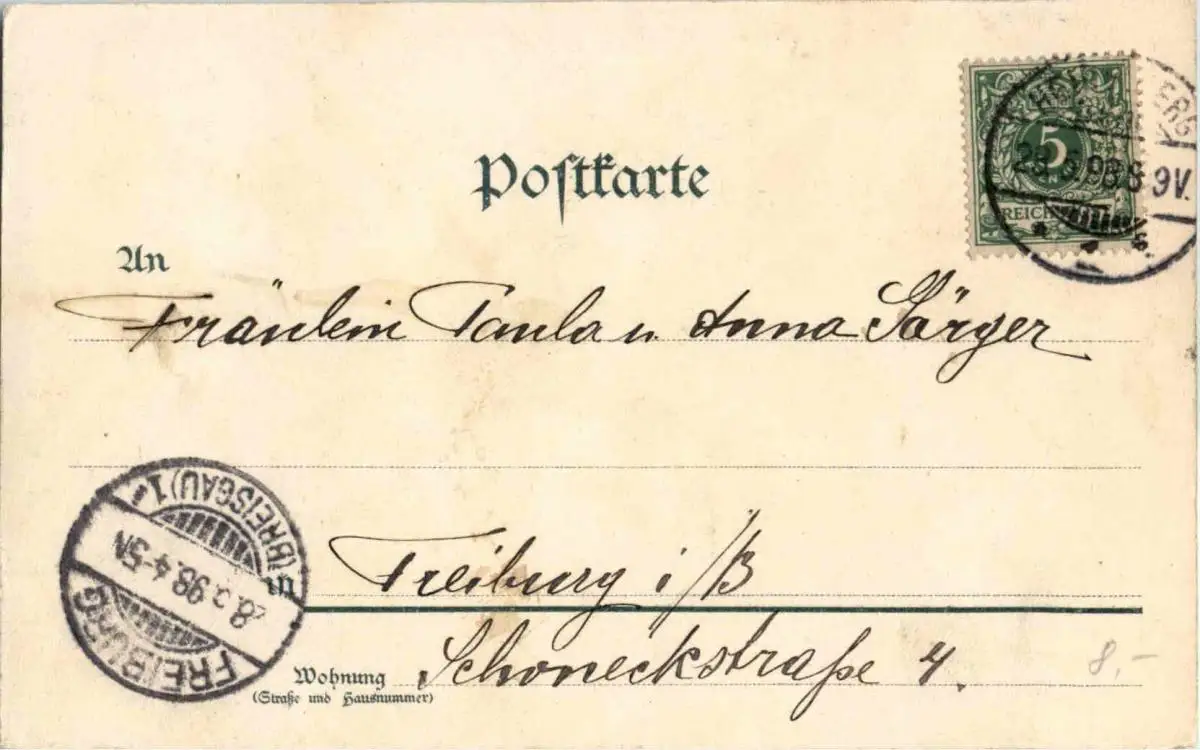 Postkarte
5
REICH
8 9V.
An
Fräulein Paula u. Anna Sörger
(BREISGAU) 1.
28.3.98.4-5N
FREIBURG
in Freiburg i/B
Wohnung Schoneckstraße 4.
(Straße und Hausnummer)
8,-